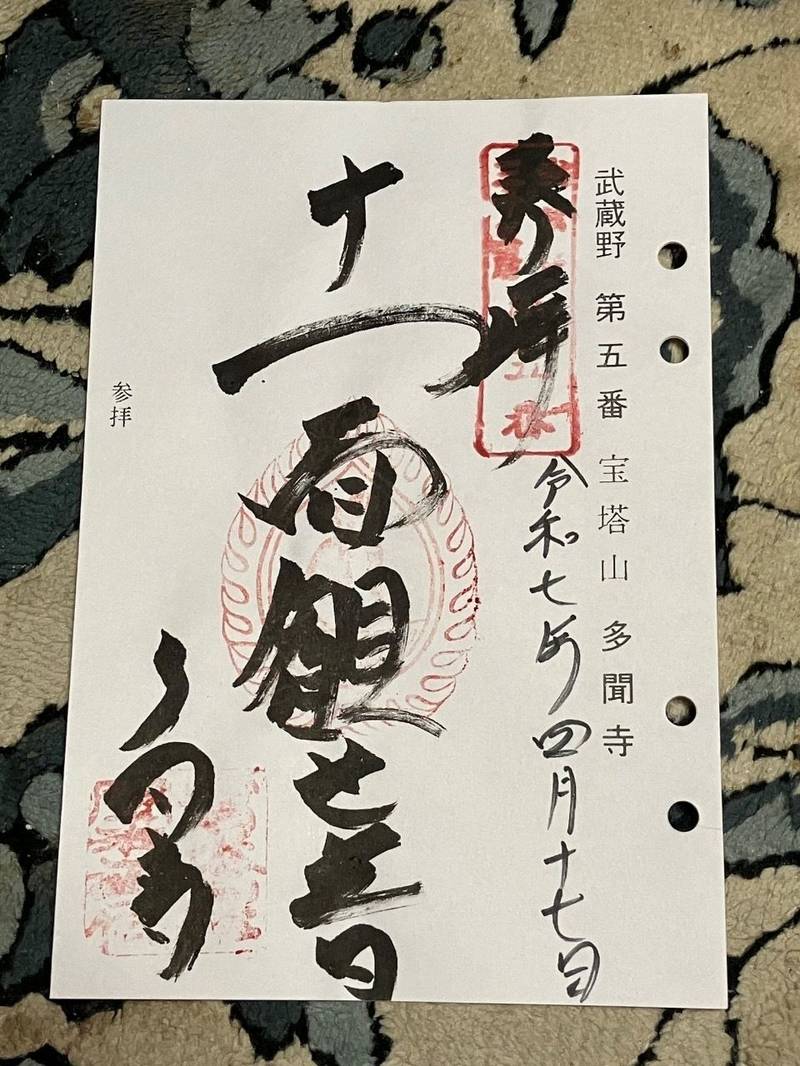 武蔵野 第五番 宝塔山 多聞寺
奉拝
令和七年四月十七日
十一面観世音
多聞寺
参拝